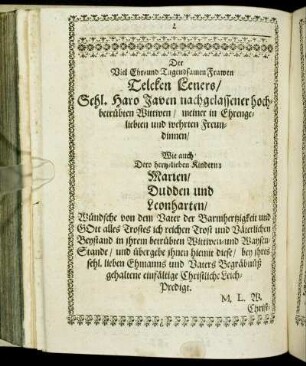 Der
Viel Ehr und Tugendsamen Frawen
Telcken Leners/
Sehl. Haro Javen nachgelassener hoch-
betrübten Wittwen/ meiner in Ehren ge-
liebten und wehrten Freun-
dinnen/
Wie auch
Dero hertzlieben Kindern:
Marien/
Dudden und
Leonharten/
Wündsche von dem Vater der Barmhertzigkeit und
GOtt alles Trostes ich reichen Trost und Väterlichen
Beystand in ihrem betrübten Wittwen und Waysen
Stande/ und übergebe ihnen hiemit diese/ bey ihres
sehl. lieben Ehmanns und Vaters Begräbnüß
gehaltene einfältige Christliche Leich-
Predigt.
M. L. W.
Christ-